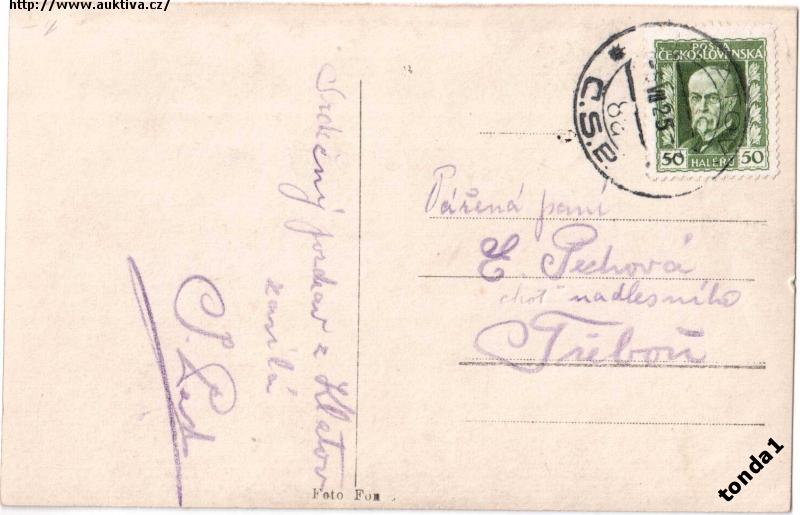 http://www.auktiva.cz/
Srdečný pozdrav z Klatov
zasílá
Vážená paní
E. Pechová
choť nadlesního
Třeboň
POŠTA
ČESKOSLOVENSKÁ
50 HALÉŘŮ 50
VII 25
* Č.S.P.
28
Foto Fon
tonda1